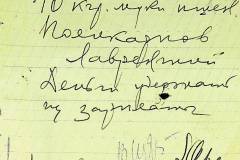 10 кгр. муки пшен.
Поликарпов
Лаврентий
Деньги удержать
из зарплаты